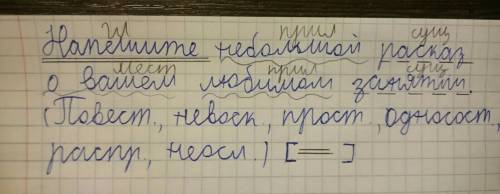 гл прил сущ
Напишите небольшой рассказ
мест прил сущ
о вашем любимом занятии.
(Повест., невоск., прост., односост.,
распр., неосл.) [ ═ ]